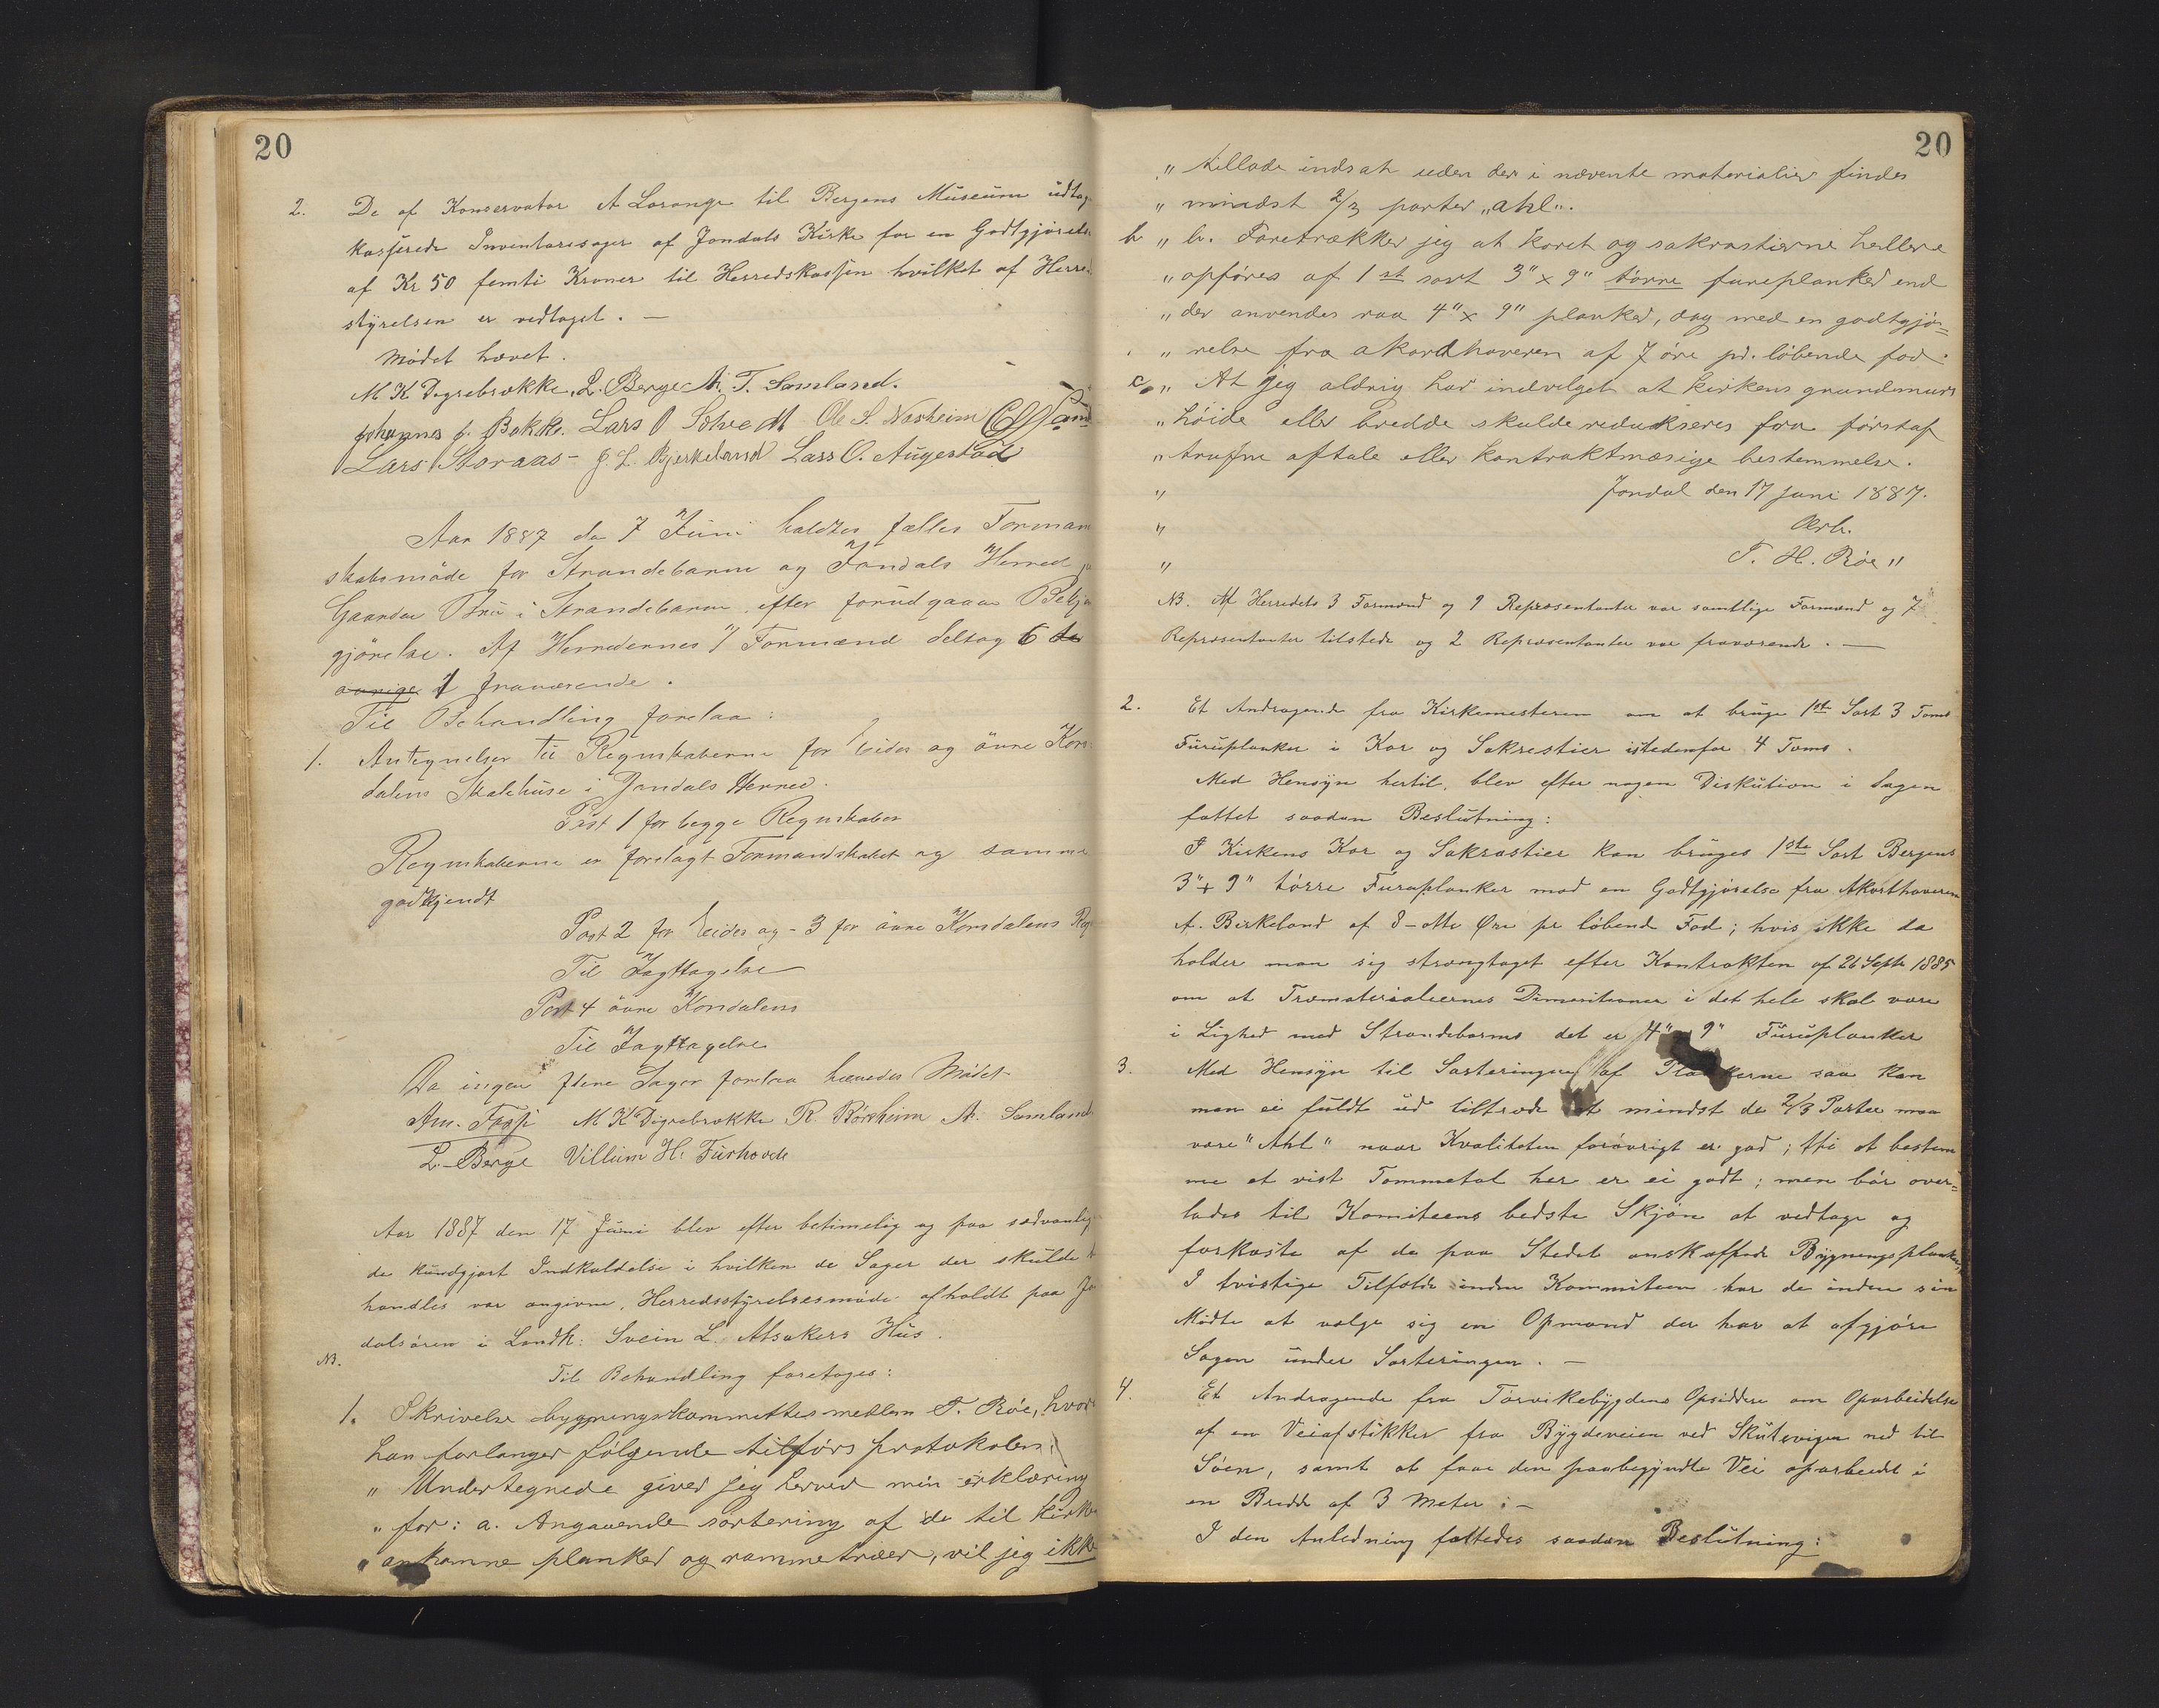 20
2. De af Konservator A Lorange til Bergens Museum udtag
kasserede Inventaresager af Jondals Kirke for en Godtgjørels
af Kr 50 femti Kroner til Herredskassen hvilket af Herre
styrelsen er vedtaget. —
Mødet hævet.
M K Digrebrække, L. Berge A. T. Samland.
Johannes J. Bakke. Lars O Solvedt Ole S. Næsheim
Lars Storaas - J. L. Bjerkeland Lars O. Augestad
Aar 1887 da 7 Juni holdtes fælles Forman
skabsmøde for Strandebarm og Jondals Herred
Gaarden Bru i Strandebarm efter forudgaaen Bekj
gjørelse. Af Herredernes 7 Formænd deltog 6 de
øvrige 1 fraværende.
Til Behandling forelaa:
1. Antegnelser til Regnskaberne for Eides og øvre Kors
dalens Skolehuse i Jondals Herred.
Post 1 for begge Regnskaber
Regnskaberne er forelagt Formandskabet og samme
godkjendt
Post 2 for Eides og - 3 for øvre Korsdalens Reg
Til Iagttagelse
Post 4 øvre Korsdalens
Til Iagttagelse
Da ingen flere Sager forelaa hævedes Mødet
Am. Fosse M K Digrebrække R. Børsheim A. Samland
L. Berge Villum H. Furhovde
Aar 1887 den 17 Juni blev efter betimelig og paa sædvanlig
de kundgjort Indkaldelse i hvilken de Sager der skulde
handles var angivne, Herredsstyrelsesmøde afholdt paa Jo
dalsøren i Landh: Svein L. Alsakers Hus.
NB.
Til Behandling foretoges:
1. Skrivelse bygningskommittesmedlem T. Røe, hvor
han forlanger følgende tilførs protokolen:
" Undertegnede giver jeg herved min erklæring
" for: a. Angaaende sortering af de til kirke
" ankomne planker og rammetræer, vil jeg ikke
20
" tillade indsat uden der i nævente materialier findes
" mindst 2/3 parter "ahl".
b " b. Foretrækker jeg at koret og sakrastierne hellere
" opføres af 1st sort 3" x 9" tørre furuplanker end
" der anvendes raa 4" x 9" planker, dog med en godtgjø=
" relse fra akordhaveren af 7 øre pr. løbende fod.
c. " At jeg aldrig har indvilget at kirkens grundmurs
" høide eller bredde skulde reduckseres fra førstaf
" trufne aftale eller kontraktmæsige bestemmelse.
" Jondal den 17 juni 1887.
" Ærb.
" T. H. Røe "
NB. Af Herredets 3 Formænd og 9 Repræsentanter var samtlige Formænd og 7
Repræsentanter tilstede og 2 Repræsentanter var fraværende. —
2. Et Andragende fra Kirkemesteren om at bruge 1ste Sort 3 Toms
Furuplanker i Kor og Sakrestier istedenfor 4 Toms.
Med Hensyn hertil, blev efter nogen Diskution i Sagen
fattet saadan Beslutning:
I Kirkens Kor og Sakrastier kan bruges 1ste Sort Bergens
3" x 9" tørre Furuplanker mod en Godtgjørelse fra Akorthaveren
A. Birkeland af 8 - otte Øre pr løbend Fod; hvis ikke da
holder man sig strængtaget efter Kontrakten af 26 Septr 1885
om at Træmaterialiernes Dimensitioner i det hele skal være
i Lighed med Strandebarms det er 4" x 9" Furuplanker
3. Med Hensyn til Sorteringen af Plankerne saa kan
man ei fuldt ud tiltræde at mindst de 2/3 Parter maa
være "Ahl" naar Kvaliteten forøvrigt er god; thi at bestem
me et vist Tommetal her er ei godt; men bør over=
lades til Komiteens bedste Skjøn at vedtage og
forkaste af de paa Stedet anskaffede Bygningsplanker,
I tvistige Tilfælde inden Kommiteen har de inden sin
Midte at vælge sig en Opmand der har at afgjøre
Sagen under Sorteringen. —
4. Et Andragende fra Torvikebygdens Opsiddere om Oparbeidelse
af en Veiafstikker fra Bygdeveien ved Skutevigen ned til
Søen, samt at faae den paabegyndte Vei oparbeidt i
en Bredde af 3 Meter: —
I den Anledning fattedes saadan Beslutning: